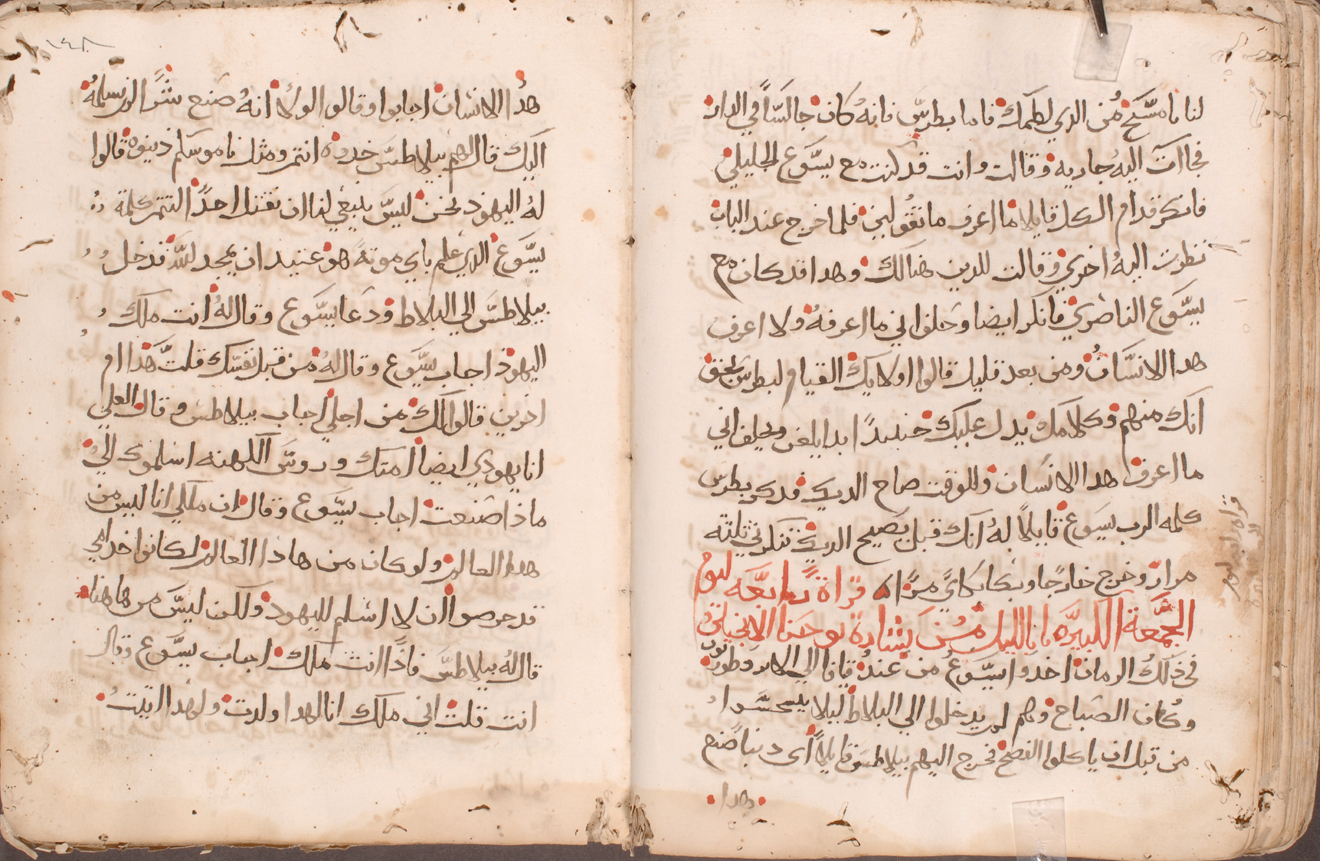 لنا يا مسّيح من الدي لطمك فاما بطرسّ فانه كان جالسّاً في الدار
فجاات اليه جاريه وقالت وانت قد كنت مع يسّوع الجليلي
فانكر قدام الكل قايلا ما اعرف ما تقولين فلما خرج عند الباب
نظرت اليه اخري وقالت للدين هنالك وهدا قد كان مع
يسّوع الناصري فانكر ايضا وحلف اني ما اعرفه ولا اعرف
هدا الانسّان ومن بعد قليل قالوا اولايك القيام لبطرس بحق
انك منهم وكلامك يدل عليك حنيدٍ ابدا يلعن ويحلف اني
ما اعرف هدا الانسان وللوقت صاح الديك فدكر بطرس
كلمه الرب يسوع قايلاً له انك قبل يصيح الديك تنكرني ثلثه
مرار وخرج خارجا وبكا بكاءً مرًا قراة رابعّه ليوم
الجمّعة الكبيرّه باثاليل مسن بشارة يوحنا الانجيلي
في ذلك الزمان اخدوا يسّوع من عند قيافا الي الابروطوريون
وكان الصباح وهم لم يدخلوا الي البلاط ليلا يتنجسّوا
من قبل ان ياكلوا الفصح فخرج اليهم بيلاطس قايلاً اي دنبا صنع
هدا
١٤٨
هدا الانسان اجابوا وقالوا لولا انه صنع شرًا لم نسلمه
اليك قال لهم بيلاطسّ خدوه انتم ومثل ناموسكم دينوه قالوا
له اليهود نحن ليسّ ينبغي لنا ان نقتل احدًا لتتم كلمة
يسّوع الدي علم باي موتة هو عتيد ان يمجد لله فدخل
بيلاطسّ الي البلاط ودعا يسّوع وقال له انت ملك
اليهود اجاب يسّوع وقال له من قبل نفسّك قلت هدا ام
اخرين قالوا لك من اجلي اجاب بيلاطس وقال العلي
انا يهودي ايضا امتك وروسّ الكهنه اسلموك اليّ
ماذا صنعت اجاب يسّوع وقال ان ملكي انا ليس من
هدا العالم ولو كان من هادا العالم لكانوا خدامي
قد حرصوا ان لا اسلم لليهود ولكن ليسّ من هاهنا
قال له بيلاطسّ فاذًا انت ملك اجاب يسّوع وقال
انت قلت اني ملك انا لهدا ولدت ولهدا اتيت